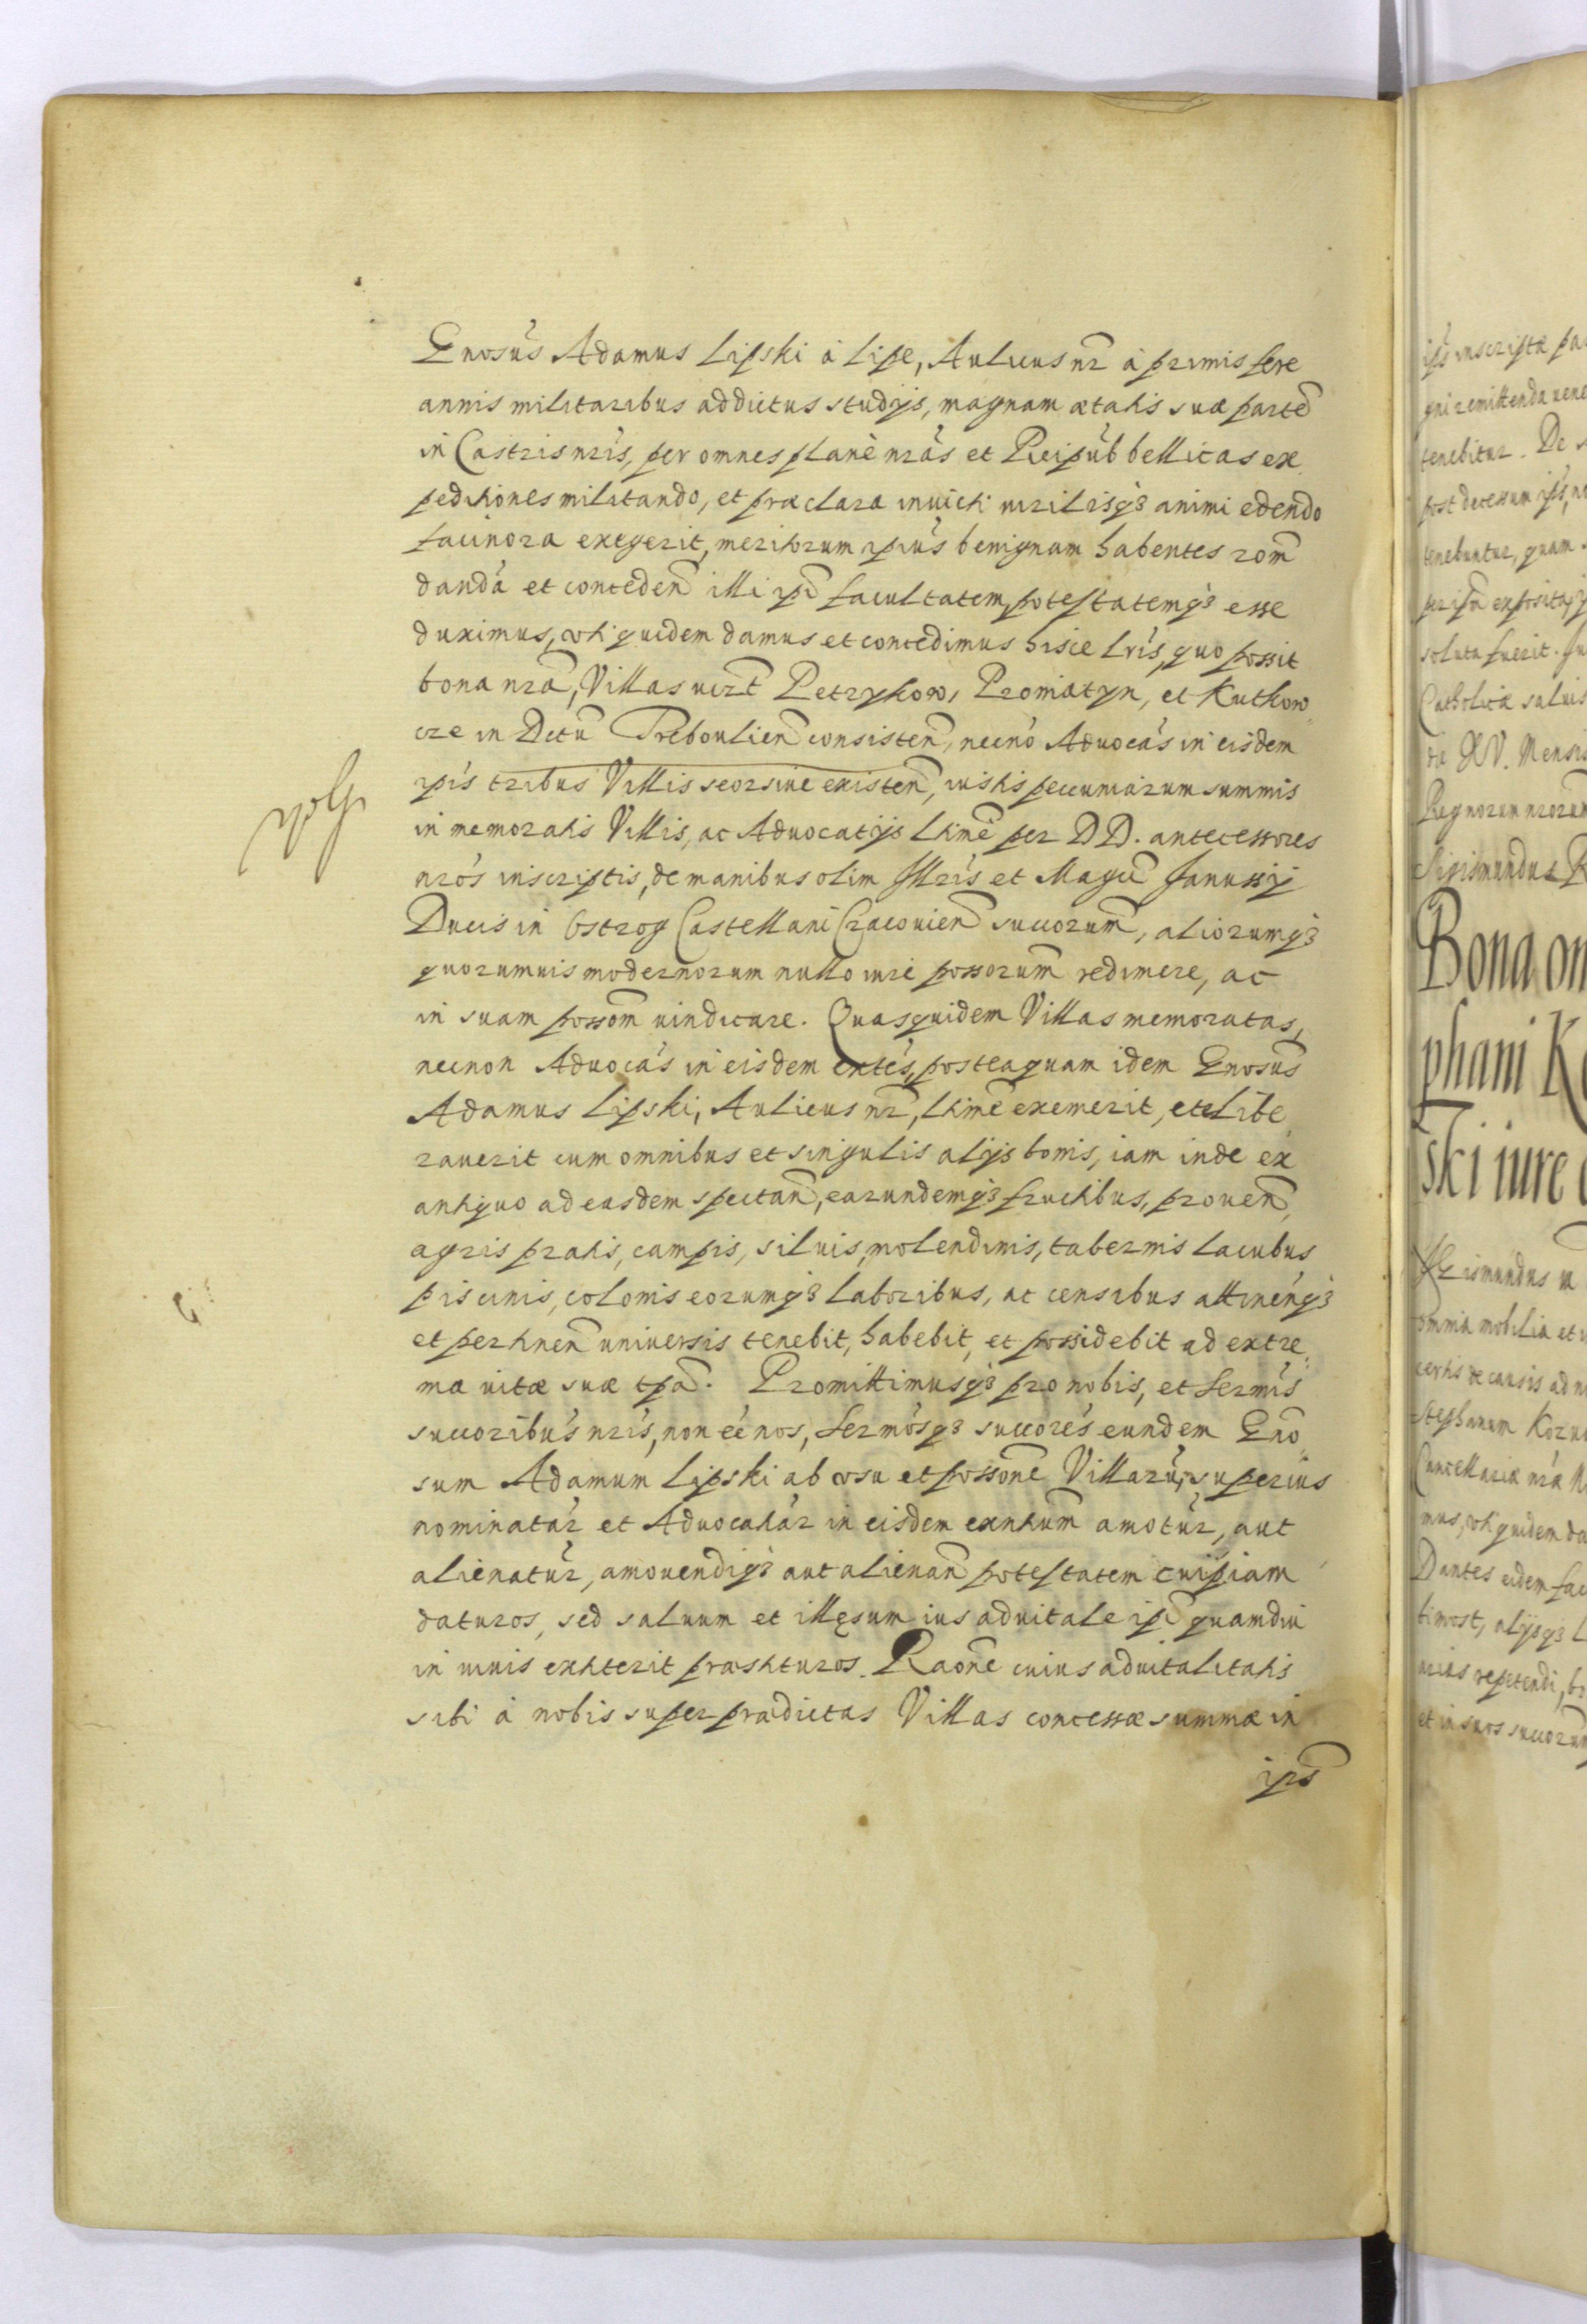 Gnosus Adamus Lipski à Lipe, Aulicus nr à primis fere
annis militaribus addictus studijs, magnam ætatis suæ parte
in Castris nris, per omnes planè nras et Reipub bellicas ex
peditiones militando, et præclara invicti virilisq3 animi edendo
facinora exegerit, meritorum ipius benignam habentes rom
danda et conceden illi ipi facultatem, potestatemq3 esse
duximus, vti quidem damus et concedimus hisce lris, quo possit
bona nra, Villas vizt Petrykow, Promiatyn, et Kutkow
cze in Dctu Treboulien consisten, necno Aduocas in eisdem
ipis tribus Villis seorsiue existen, iustis pecuniarum summis
in memoratis Villis, ac Aduocatijs ltime per DD. antecessores
nros inscriptis, de manibus olim Illris et Magci Janussij
Ducis in Ostrog Castellani Cracouien succorum, aliorumq3
quorumuis modernorum nullo iure possorum redimere, ac
in suam possom uindicare. Quasquidem Villas memoratas,
necnon Aduocas in eisdem extes, posteaquam idem Gnosus
Adamus Lipski, Aulicus nr, ltime exemerit, et libe
rauerit cum omnibus et singulis alijs bonis, iam inde ex
antiquo ad easdem spectan, earundemq3 fructibus, prouen,
agris pratis, campis, siluis, molendinis, tabernis lacubus
piscinis, colonis eorumq3 laboribus, ac censibus attinenq3
et pertinen universis tenebit, habebit, et possidebit ad extre
ma uitæ suæ tpa. Promittimusq3 pro nobis, et Sermis
succoribus nris, non ee nos, Sermosq3 succores eundem Gno
sum Adamum Lipski ab vsu et possone Villaru superius
nominatar et Aduocatiar in eisdem exntium amotur, aut
alienatur, amouendiq3 aut alienan potestatem cuipiam
daturos, sed saluum et illęsum ius aduitale ipi quamdiu
in uiuis extiterit præstituros. Raone cuius aduitalitatis
sibi à nobis super prædictas Villas concessæ summæ in
ips